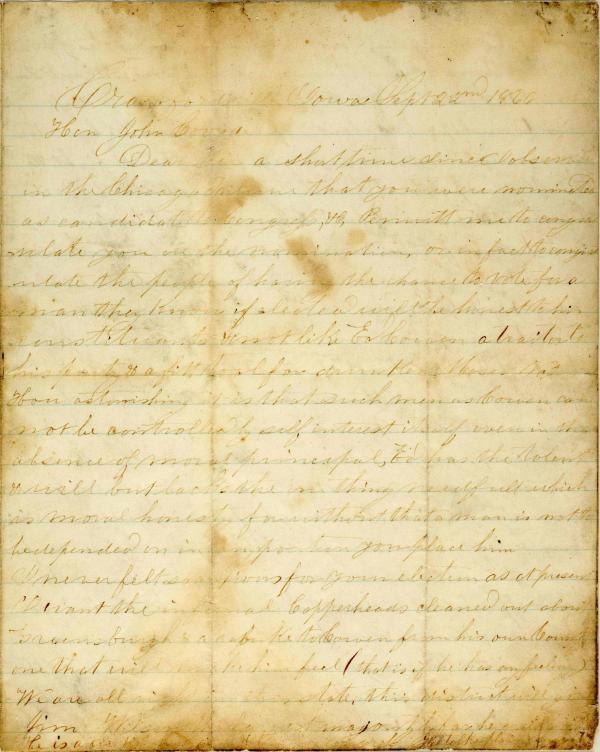 Iowa Sept 22nd 18
Hon John Covode
Dear Sir a short time since I observed
in the Chicago that you were nominated
as candidate Congress, &c, Permitt me to congrat
ulate you on the nomination, or in fact to congrat
ulate the people of having the chance to vote for a
man they know if elected will be honest to his
constituents & not like Ed Cowen a traitor to
his party & a fitt tool for
How astonishing it is that such men as Cowen can
not be controlled by self interest itself even in the
absence of moral principal, Ed has the talent
& will but lacks the one thing needfull which
is moral honesty for without that a man is not to
be depended on in any position you place him
I never felt so anxious for your election as at present
I want the infernal Copperheads cleaned out about
Greensburgh & a rebuke to Cowen from his own County
one that will make him feel (that is if he has any feeling)
We are all right in this state, this district will give
Jim majority
He is